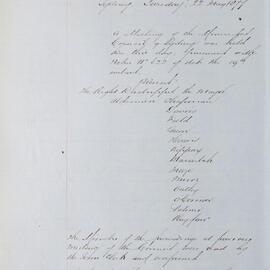 Sydney, Tuesday, 22 May 1877
A Meeting of the Municipal
Council of Sydney was held
this day, pursuant
Notice No 622 of date the 19th
instant.
Present:
The Right Worshipful the Mayor
Aldermen Chapman
Davies
Field
Green
Kippax
Macintosh
Meeks
Moore
Oatley
O'Connor
Palmer
Playfair
The Minutes of the proceedings at previous
Meeting of the Council were read by
the Town Clerk and confirmed